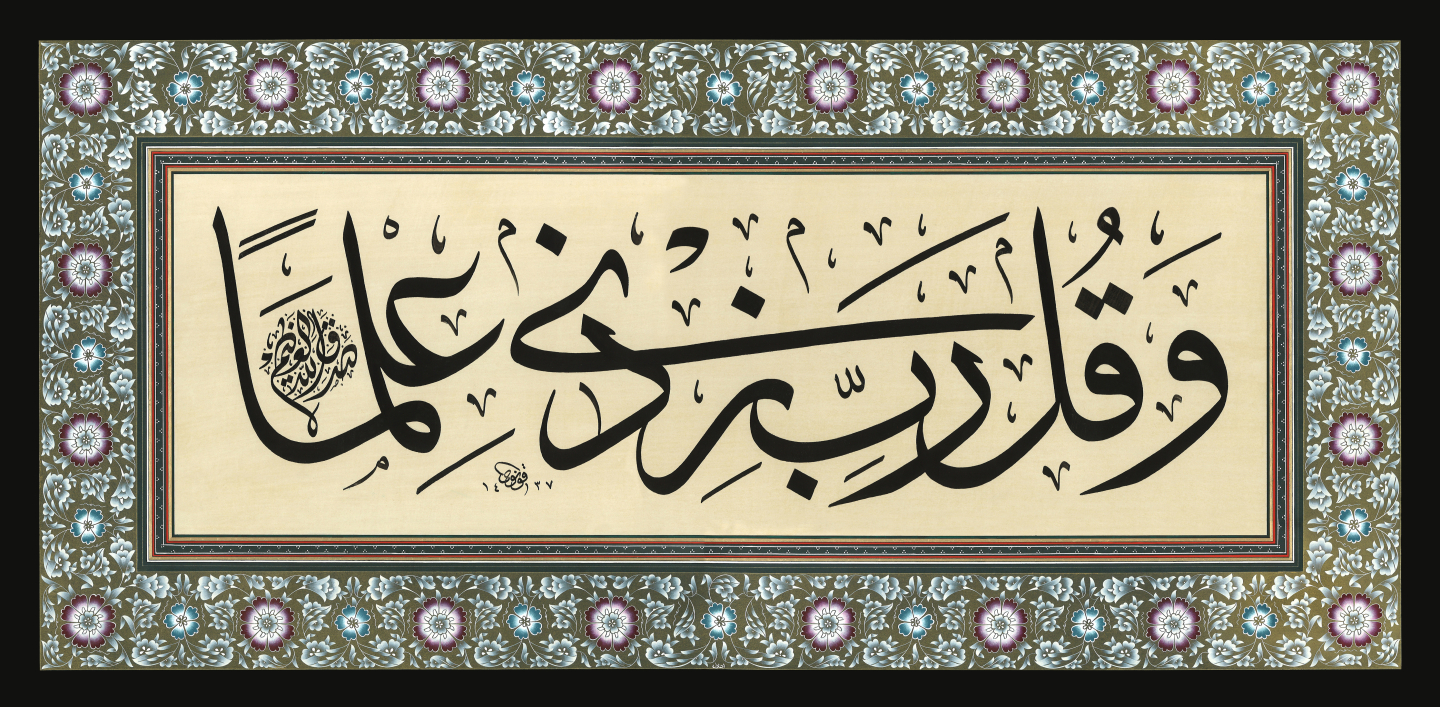 وَقُلْ رَبِّ زِدْنِي عِلْمًا
صدق الله العظيم
١٤٣٧